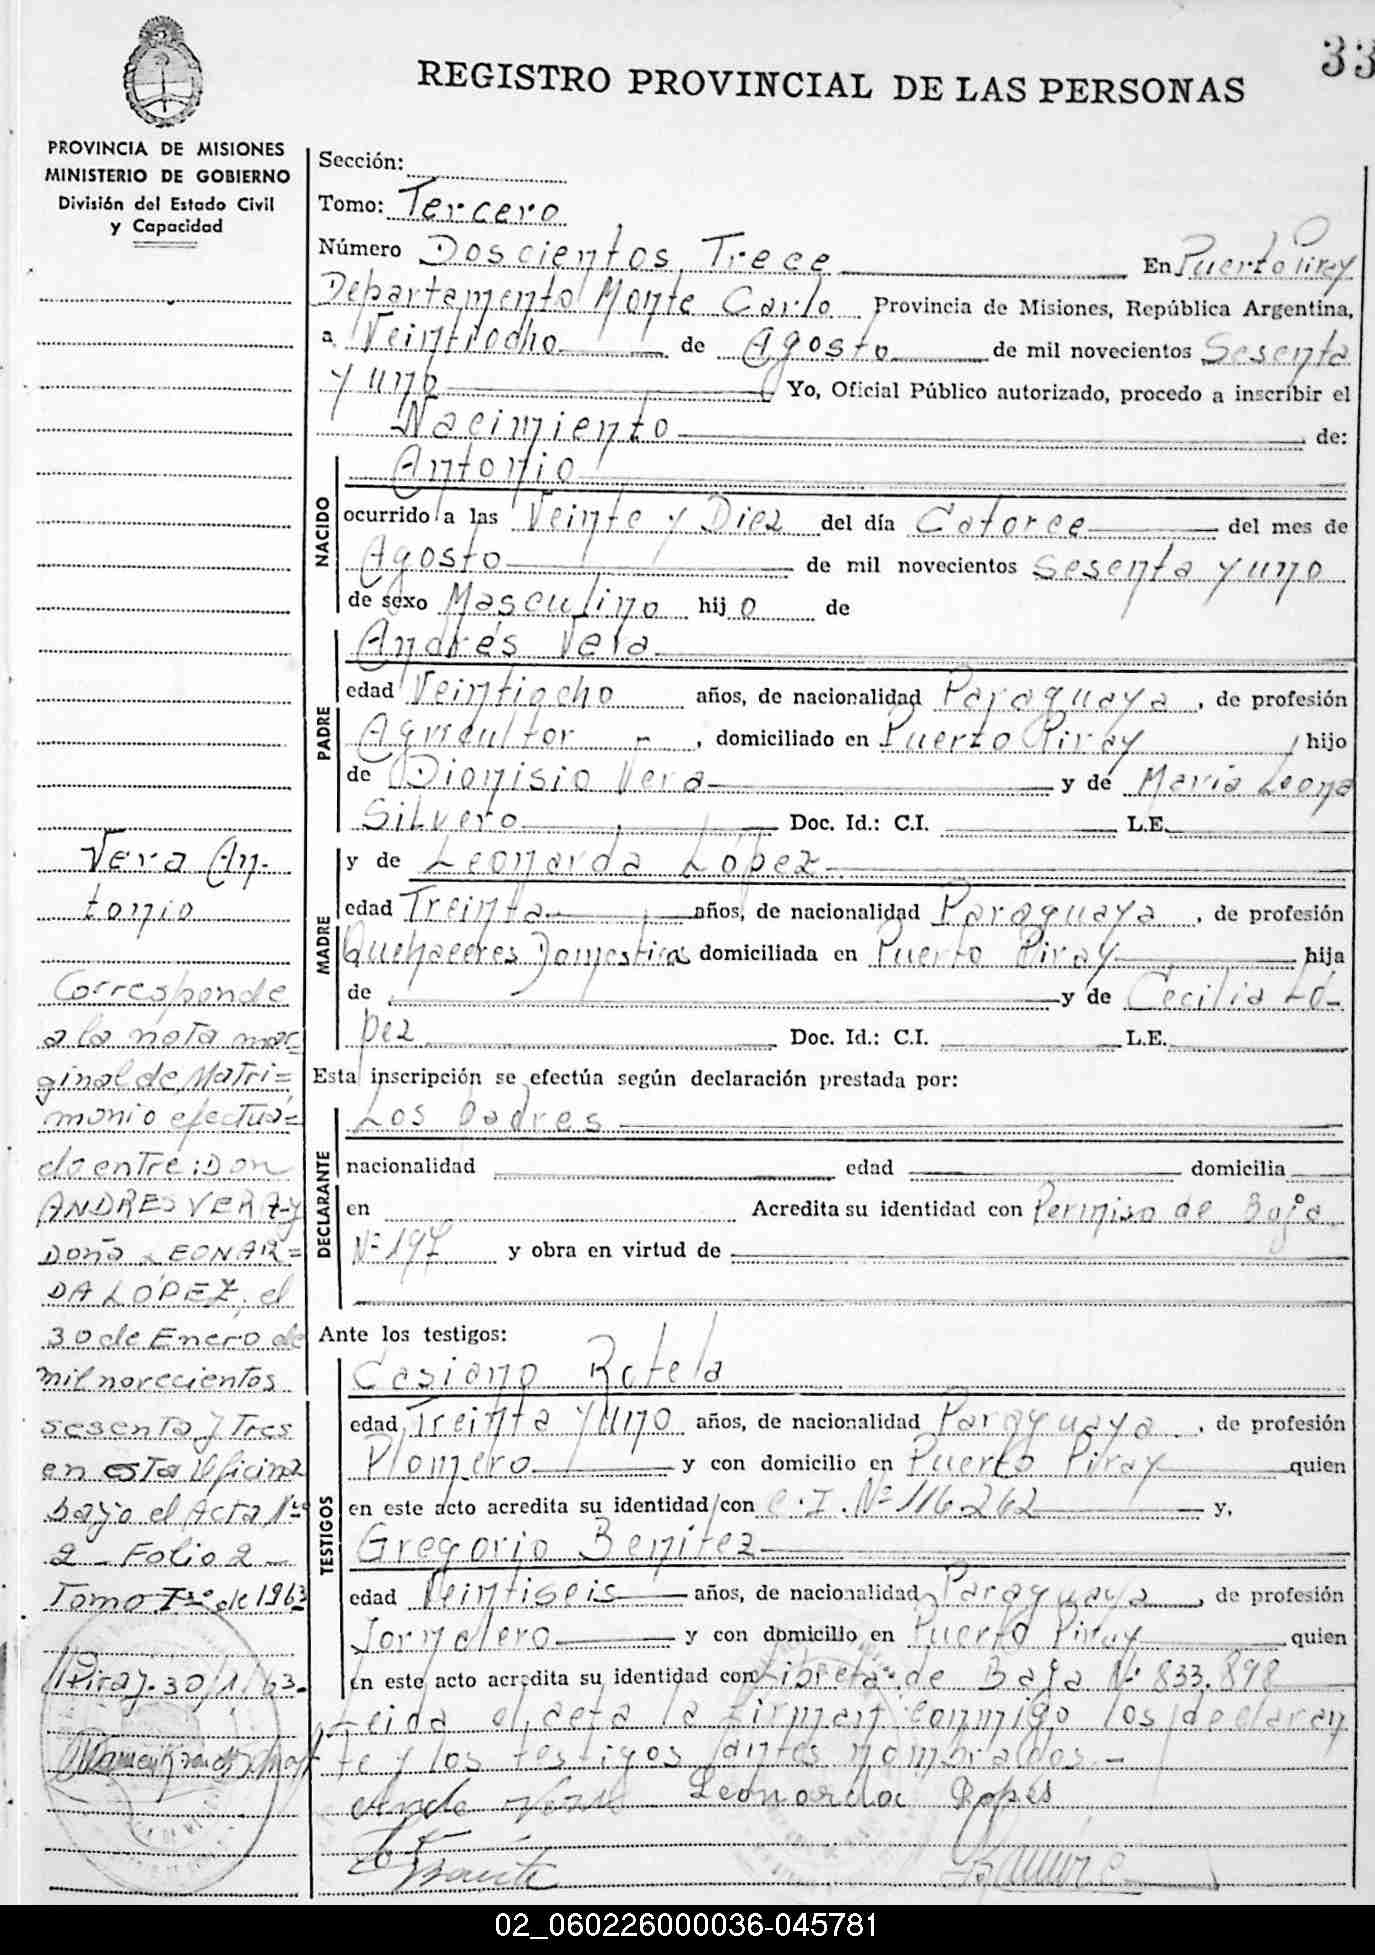 33
REGISTRO PROVINCIAL DE LAS PERSONAS
PROVINCIA DE MISIONES
MINISTERIO DE GOBIERNO
División del Estado Civil
y Capacidad
Vera An-
tonio
Corresponde
a la nota mar-
ginal de Matri=
monio efectua=
do entre: Don
ANDRES VERA y
Doña LEONAR=
DA LÓPEZ, el
30 de Enero de
mil novecientos
sesenta y Tres
en esta Oficina
Bajo el Acta Nº
2 - Folio 2 -
Tomo 1º de 1963
Piray. 30/1/63.-
Sección:
Tomo: Tercero
Número Doscientos Trece En Puerto Piray
Departamento Monte Carlo Provincia de Misiones, República Argentina,
a Veintiocho de Agosto de mil novecientos Sesenta
y uno Yo, Oficial Público autorizado, procedo a inscribir el
Nacimiento de:
NACIDO
Antonio
ocurrido a las Veinte y Diez del día Catorce del mes de
Agosto de mil novecientos Sesenta y uno
de sexo Masculino hijo de
PADRE
Andrés Vera
edad Veintiocho años, de nacionalidad Paraguaya, de profesión
Agricultor -, domiciliado en Puerto Piray, hijo
de Dionisio Vera y de María Leona
Silvero Doc. Id.: C.I. L.E.
MADRE
y de Leonarda López
edad Treinta años, de nacionalidad Paraguaya, de profesión
Quehaceres Domesticos domiciliada en Puerto Piray hija
de y de Cecilia Ló-
pez Doc. Id.: C.I. L.E.
Esta inscripción se efectúa según declaración prestada por:
DECLARANTE
Los padres
nacionalidad edad domicilia
en Acredita su identidad con Permiso de Baja
Nº 197 y obra en virtud de
Ante los testigos:
TESTIGOS
Casiano Rotela
edad Treinta y uno años, de nacionalidad Paraguaya, de profesión
Plomero y con domicilio en Puerto Piray quien
en este acto acredita su identidad con C.I. Nº 116.262 y,
Gregorio Benitez
edad Veintiseis años, de nacionalidad Paraguaya, de profesión
Jornalero y con domicilio en Puerto Piray quien
en este acto acredita su identidad con Libreta de Baja Nº 833.898
Leida el acta la firman conmigo los declaran
te y los testigos antes nombrados.-
Leonarda Lopes
02_060226000036-045781